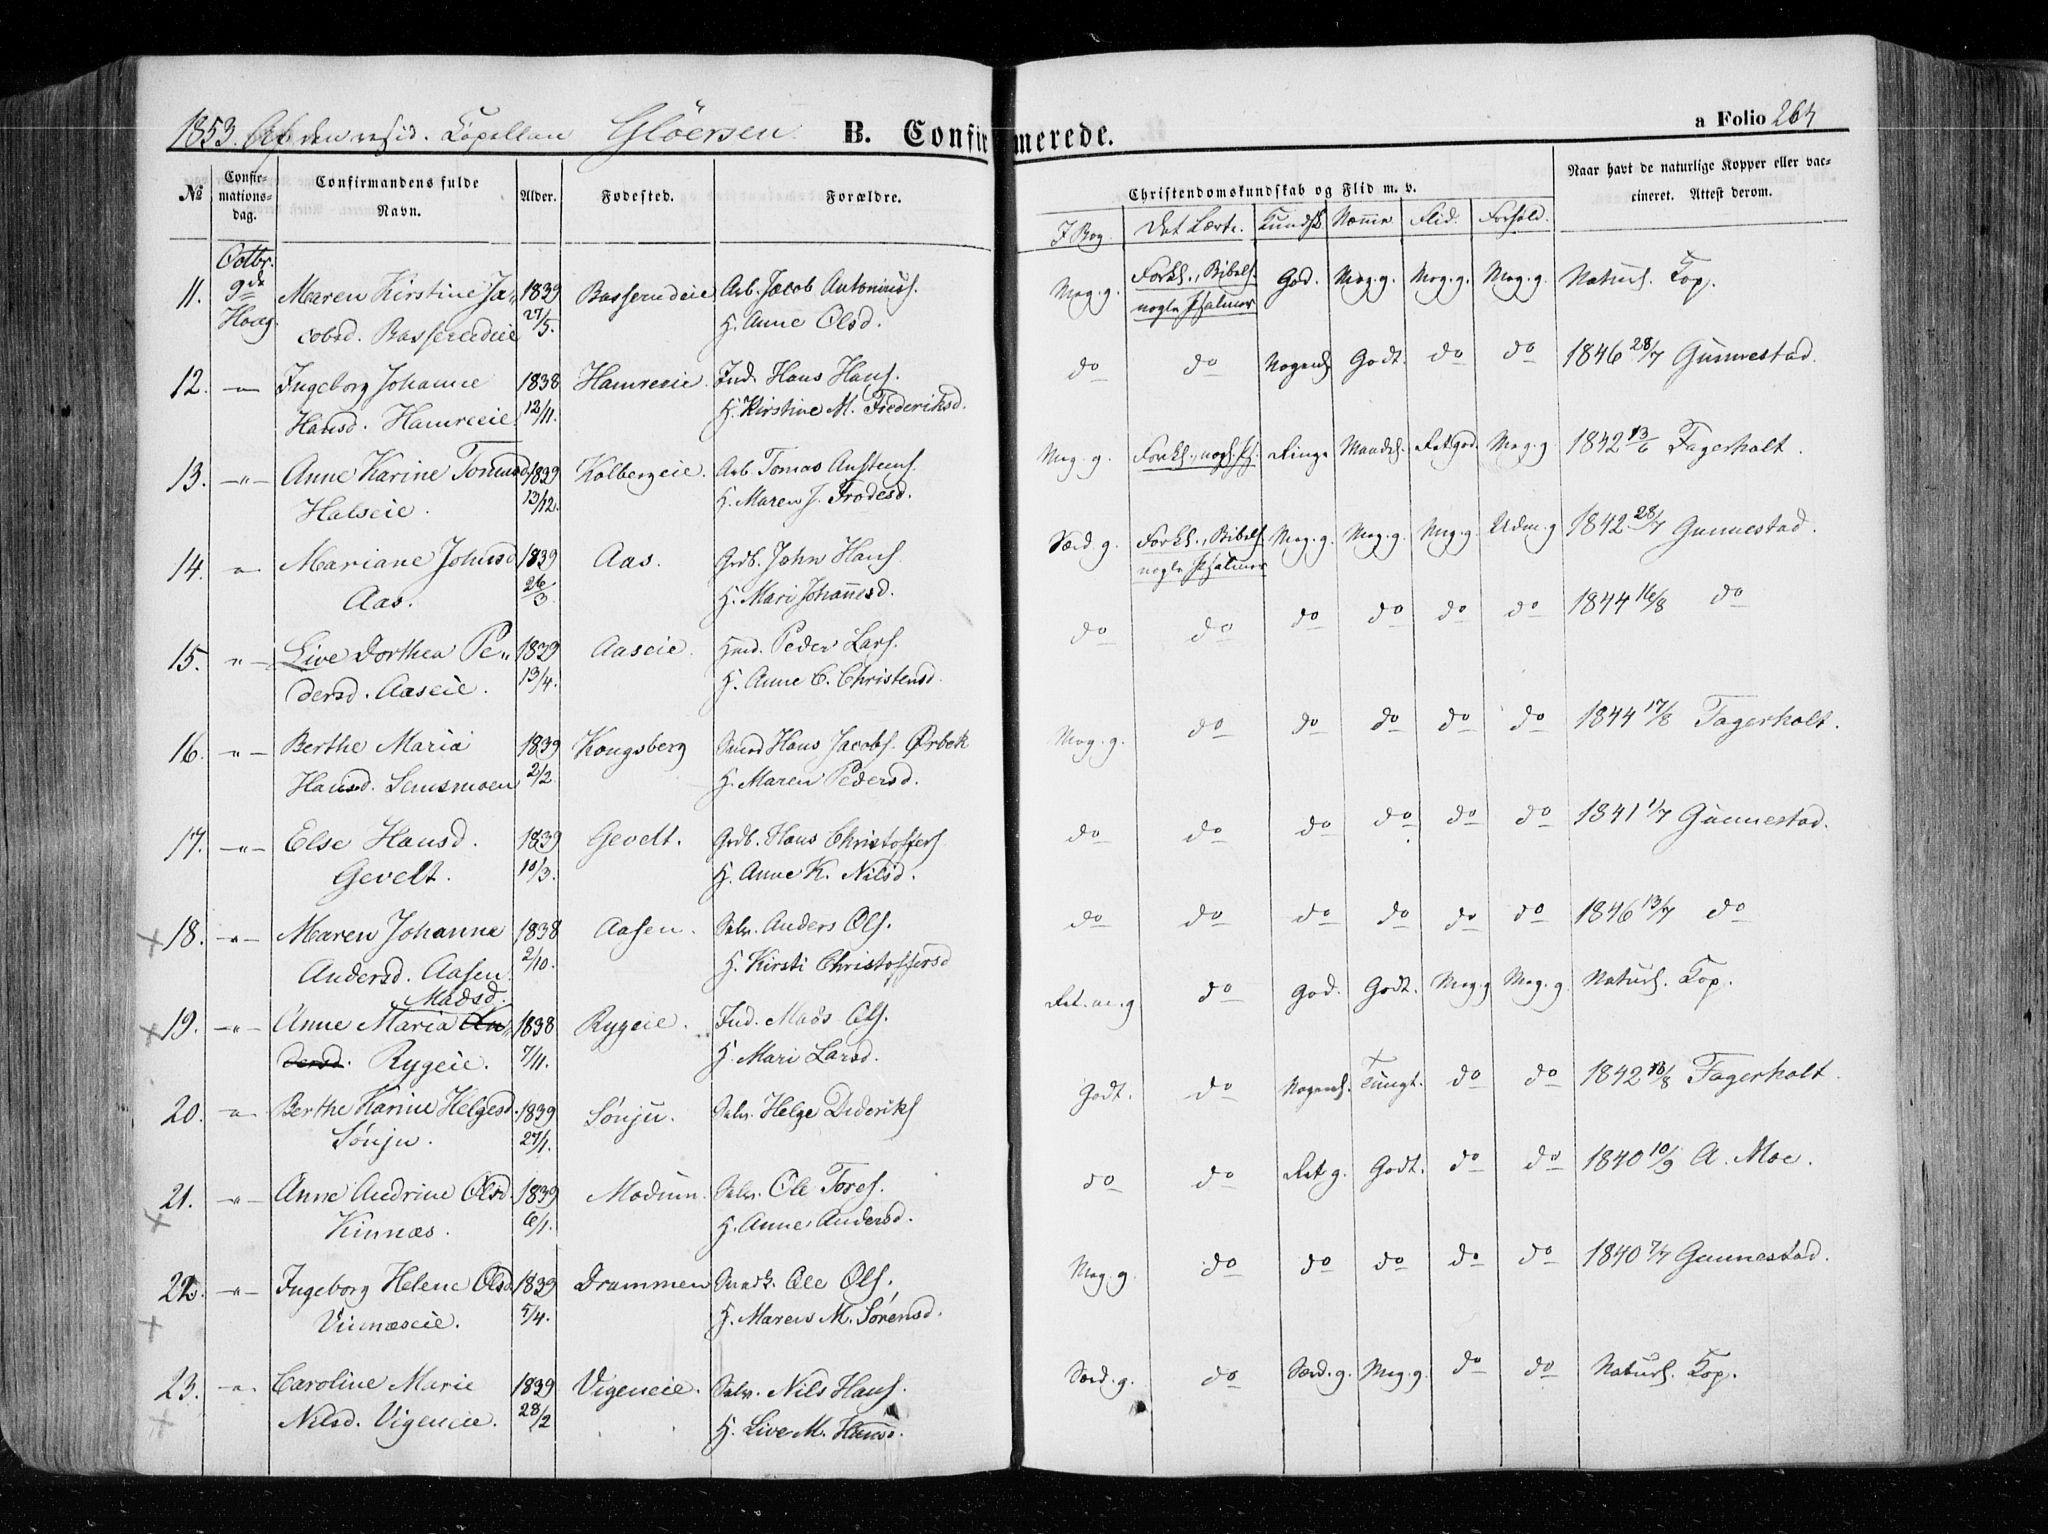 1853. Af den resid. Capellan Gløersen B. Confirmerede. a Folio 264
№ Confirmationsdag. Confirmandens fulde Navn. Alder. Fødested. Forældre. Christendomskundskab og Flid m. v. Naar havt de naturlige Kopper eller vaccineret. Attest derom.
I Bog. Det Lærte. Kundsk. Nemme Flid. Forhold.
Octbr.
11. 9de Maren Kirstine Ja- 1839 Basserudeie Arb. Jacob Antonius. Meg. g. Forkl., Bibelh. God. Meg. g. Meg. g. Meg. g. Naturl. Kop.
Houg. cobsd. Basserudeie 27/5. H. Anne Olsd. nogle Psalmer
12. -"- Ingeborg Johanne 1838 Hamreeie. Ind. Hans Hans. do do Nogenl. Godt. do do 1846 28/7 Gunnestad.
Hansd. Hamreeie. 12/11. H. Kirstine M. Frederiksd.
13. -"- Anne Karine Tomasd. 1839 Kolbergeie. Arb. Tomas Anstens. Meg. g. Forkl., nogl. Ps. Ringe Maadel. Ret God. Meg. g. 1842 13/6 Fagerholt.
Halseie. 13/12. H. Maren J. Frodesd.
14. -"- Mariane Johnsd 1839 Aas. Grdb. John Hans. Særd. g. Forkl., Bibelh. Meg. g. Meg. g. Meg. g. Udm. g 1842 28/7 Gunnestad.
Aas. 26/3. H. Mari Johannesd. nogle Psalmer
15. -"- Live Dorthea Pe- 1839 Aaseie. Huusd. Peder Lars. do do do do do do 1844 16/8 do
dersd. Aaseie. 13/4. H. Anne C. Christensd.
16. -"- Berthe Maria 1839 Kongsberg Hans Jacobs. Ørbek Meg. g. do do do do do 1844 17/8 Fagerholt.
Hansd. Semsmoen 2/2 H. Maren Pedersd.
17. -"- Else Hansd. 1839 Gevelt. Grdb. Hans Christoffers do do do do do do 1841 1/7 Gunnestad.
Gevelt. 10/3. H. Anne K. Nilsd.
18. -"- Maren Johanne 1838 Aasen. Selv. Anders Ols. do do do do do do 1846 13/7 do
Andersd. Aasen. 2/10. H. Kirsti Christoffersd
Madsd.
19. -"- Anne Maria An- 1838 Rygeie. Ind. Mads Ols. Ret. m. g do God. Godt. Meg. g Meg. g. Naturl. Kop.
dersd. Rygeie. 7/11. H. Mari Larsd.
20. -"- Berthe Karine Helgesd. 1839 Sønju. Selv. Helge Dideriks Godt. do Nogenl. Tungt. do do 1842 18/8 Fagerholt.
Sønju. 27/1.
21. -"- Anne Andrine Olsd. 1839 Modum. Selv. Ole Tores. do do Ret g. Godt. do do 1840 10/9 A. Moe.
Kinnæs. 6/1. H. Anne Andersd.
22. -"- Ingeborg Helene Olsd. 1839 Drammen Snedk. Ole Ols. Meg. g do do do do do 1840 7/7 Gunnestad.
Vinnæseie. 5/4. H. Maren M. Sørensd.
23. -"- Caroline Marie 1839 Vigeneie. Selv. Nils Hans. Særd. g. do Særd. g. Meg. g. do do Naturl. Kop.
Nilsd. Vigeneie. 28/2 H. Live M. Hansd.